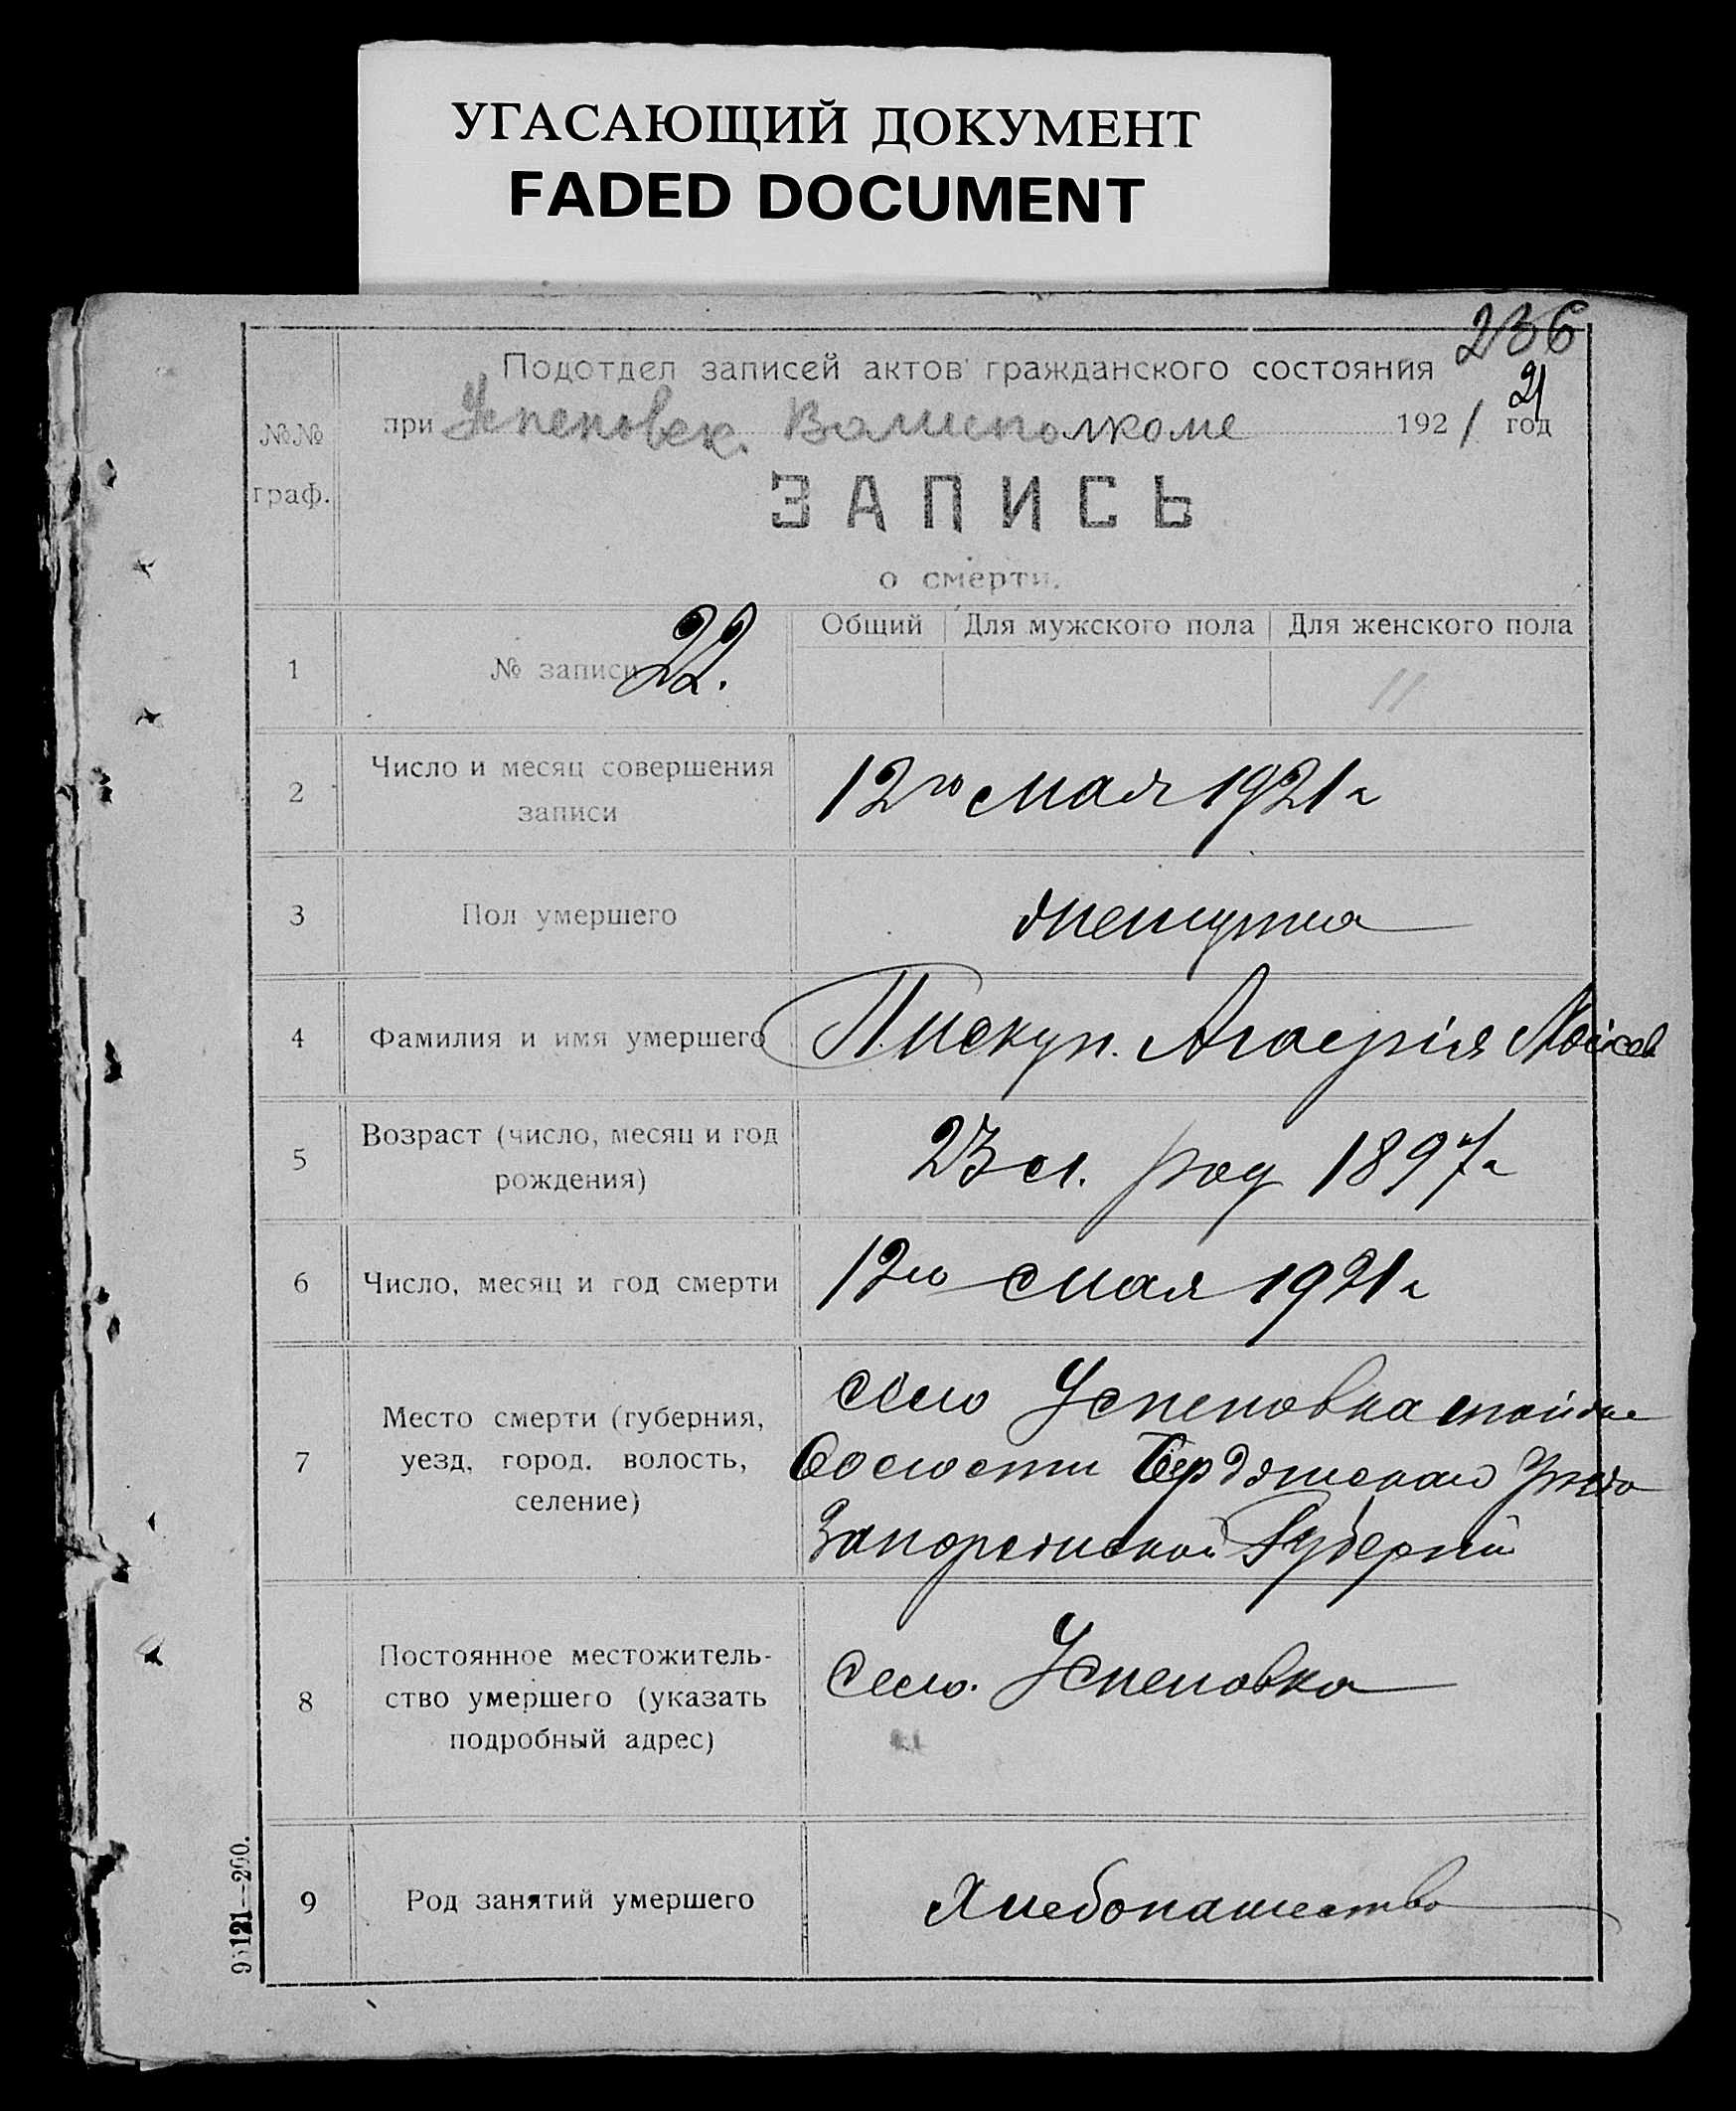 УГАСАЮЩИЙ ДОКУМЕНТ
FADED DOCUMENT
236
21
Подотдел записей актов гражданского состояния
№№ граф.
при Успеновск. Волисполкоме 1921 год
ЗАПИСЬ
о смерти.
Общий Для мужского пола Для женского пола
1 № записи 22. 11
2 Число и месяц совершения записи 12го мая 1921 г
3 Пол умершего
4 Фамилия и имя умершего Пискун. Моисев
5 Возраст (число, месяц и год рождения) 23 л. род 1897 г
6 Число, месяц и год смерти 12го мая 1921 г
7 Место смерти (губерния, уезд, город, волость, селение)
село Успеновка тойже
волости Бердянскаго Уезда
Запорожской Губернии
8 Постоянное местожитель-
ство умершего (указать
подробный адрес)
Село. Успеновка
9 Род занятий умершего Хлебопашество